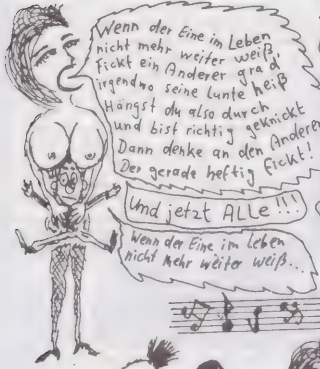 Wenn der Eine im Leben
nicht mehr weiter weiß,
Fickt ein Anderer grad'
irgendwo seine Lunte heiß
Hängst du also durch
und bist richtig geknickt
Dann denke an den Anderen
Der gerade heftig fickt!
Und jetzt ALLe !!!
Wenn der Eine im Leben
nicht mehr weiter weiß...